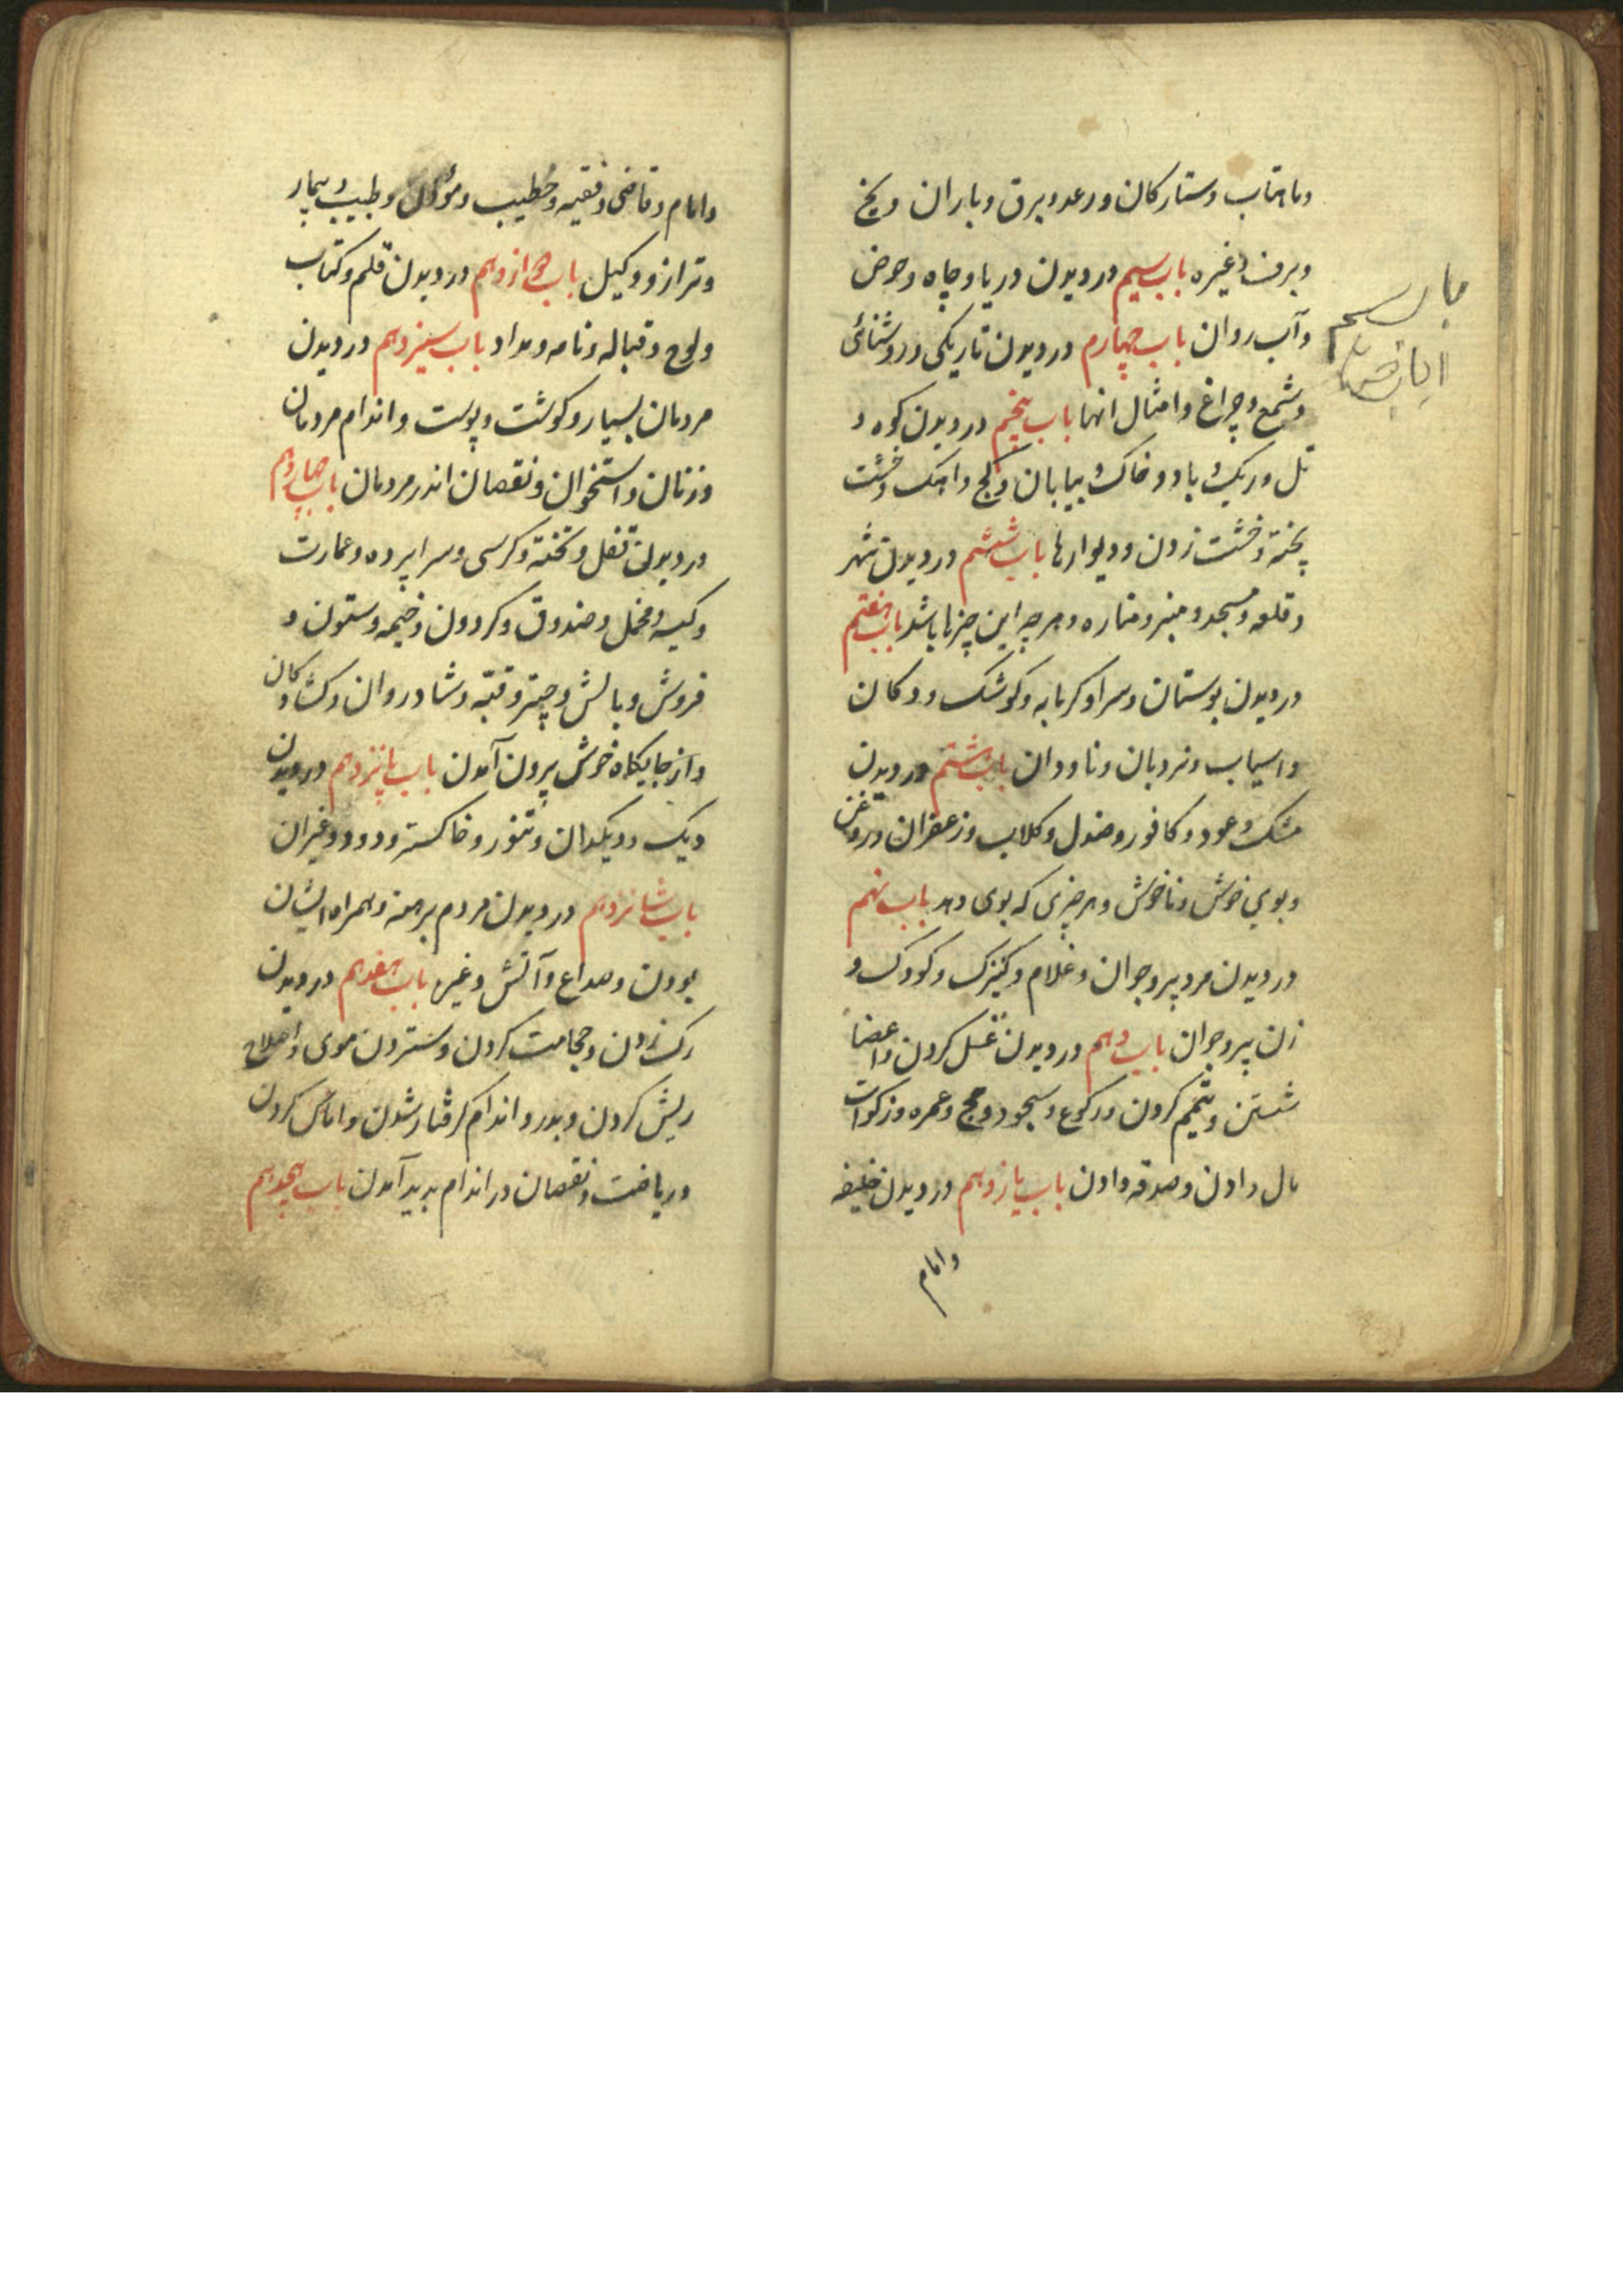 وماهتاب وستارکان ورعد وبرق وباران ویخ
وبرف وغیره باب سیم در دیدن دریا وچاه وحوض
وآب روان باب چهارم در دیدن تاریکی وروشنائی
وشمع وچراغ وامثال انها باب پنجم در دیدن کوه و
تل وریک وباد وخاک وبیابان وکچ واهک وخشت
پخته وخشت زدن ودیوارها باب ششم در دیدن شهر
وقلعه ومسجد ومنبر ومناره وهرچه این چیزها باشد باب هفتم
در دیدن بوستان وسرا وکرمابه وکوشک ودکان
واسیاب ونردبان وناودان باب هشتم در دیدن
مشک وعود وکافور وصندل وکلاب وزعفران وروغن
وبوی خوش وناخوش وهر چیزی که بوی دهد باب نهم
در دیدن مرد پیر وجوان وغلام وکنیزک وکودک و
زن پیر وجوان باب دهم در دیدن غسل کردن واعضا
شستن وتیمم کردن ورکوع وسجود وحج وعمره وزکوات
مال دادن وصدقه دادن باب یازدهم در دیدن خلیفه
وامام
وامام وقاضی وفقیه وخطیب ومؤذن وطبیب وبیمار
وترازو وکیل باب دوازدهم در دیدن قلم وکتاب
ولوح وقباله ونامه ومداد باب سیزدهم در دیدن
مردمان بسیار وکوشت وپوست واندام مردمان
وزنان واستخوان ونقصان اندر مردمان باب چهاردهم
در دیدن قفل وتخته وکرسی وسراپرده وعمارت
وکیسه ومحمل وصندوق وکردون وخیمه وستون و
فروش وبالش وچتر وقبّه وشادروان وکشاد وکان
واز جایکاه خوش بیرون آمدن باب پانزدهم در دیدن
دیک ودیکدان وتنور وخاکستر ودود وغیران
باب شانزدهم در دیدن مردم برهنه وهمراه ایشان
بودن وصداع وآتش وغیره باب هفدهم در دیدن
رک زدن وحجامت کردن وستردن موی واصلاح
ریش کردن وبدرد اندام کرفتار شدن واماس کردن
وریاضت ونقصان در اندام پدید آمدن باب هجدهم